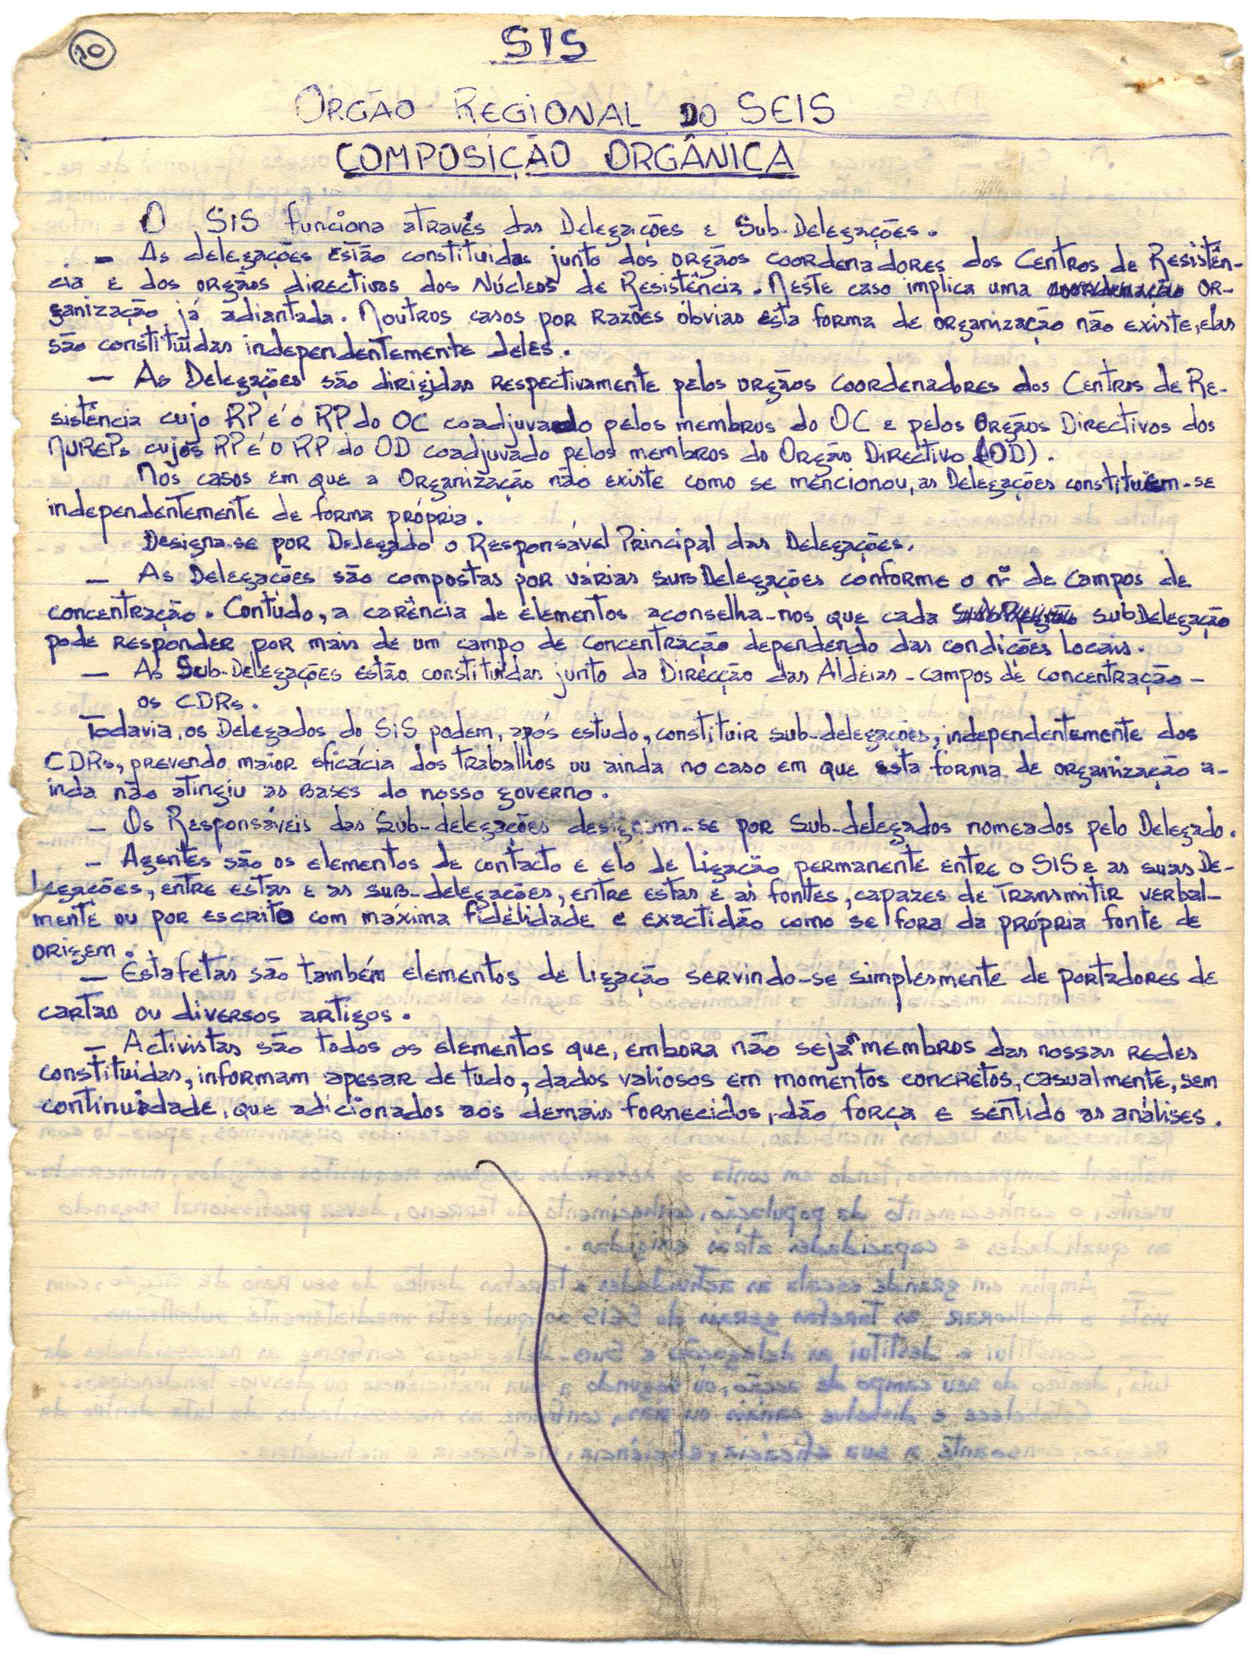 20
SIS
ORGÃO REGIONAL DO SEIS
COMPOSIÇÃO ORGÂNICA
O SIS funciona através das Delegações e Sub-Delegações.
- As delegações estão constituidas junto dos orgãos coordenadores dos Centros de Resistên-
cia e dos orgãos directivos dos Núcleos de Resistência. Neste caso implica uma coordenação or-
ganização já adiantada. Noutros casos por razões óbvias esta forma de organização não existe, elas
são constituídas independentemente deles.
- As Delegações são dirigidas respectivamente pelos orgãos coordenadores dos Centros de Re-
sistência cujo RP é o RP do OC coadjuvado pelos membros do OC e pelos Orgãos Directivos dos
NUREPs cujos RP é o RP do OD coadjuvado pelos membros do Orgão Directivo (OD).
Nos casos em que a Organização não existe como se mencionou, as Delegações constituem-se
independentemente de forma própria.
Designa-se por Delegado o Responsável Principal das Delegações.
- As Delegações são compostas por várias subDelegações conforme o nº de campos de
concentração. Contudo, a carência de elementos aconselha-nos que cada subDelegação
pode responder por mais de um campo de concentração dependendo das condições locais.
- As Sub-Delegações estão constituidas junto da Direcção das Aldeias-campos de concentração -
os CDRs.
Todavia, os Delegados do SIS podem, após estudo, constituir sub-delegações, independentemente dos
CDRs, prevendo maior eficácia dos trabalhos ou ainda no caso em que esta forma de organização a-
inda não atingiu as bases do nosso governo.
- Os Responsáveis das Sub-delegações designam-se por Sub-delegados nomeados pelo Delegado.
- Agentes são os elementos de contacto e elo de ligação permanente entre o SIS e as suas De-
legações, entre estas e as sub-delegações, entre estas e as fontes, capazes de transmitir verbal-
mente ou por escrito com máxima fidelidade e exactidão como se fora da própria fonte de
origem.
- Estafetas são também elementos de ligação servindo-se simplesmente de portadores de
cartas ou diversos artigos.
- Activistas são todos os elementos que, embora não sejam membros das nossas redes
constituidas, informam apesar de tudo, dados valiosos em momentos concretos, casualmente, sem
continuidade, que adicionados aos demais fornecidos, dão força e sentido as análises.